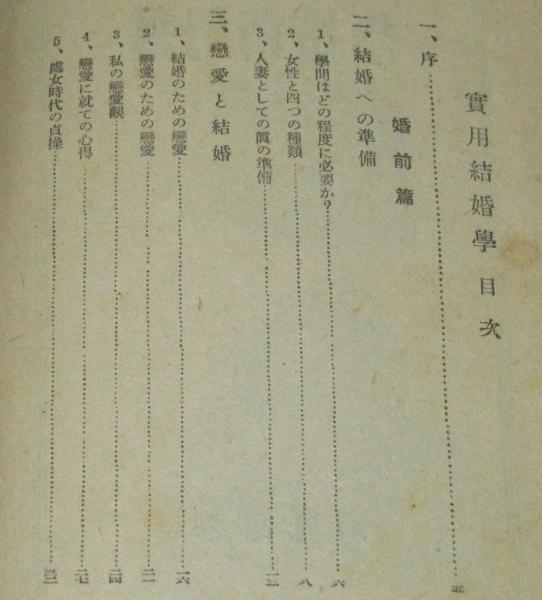 實用結婚學 目次
一、序……五
婚前篇
二、結婚への準備
1、學問はどの程度に必要か?……六
2、女性と四つの種類……八
3、人妻としての眞の準備……一三
三、戀愛と結婚
1、結婚のための戀愛……一六
2、戀愛のための戀愛……二一
3、私の戀愛觀……二四
4、戀愛に就ての心得……二七
5、處女時代の貞操……三二